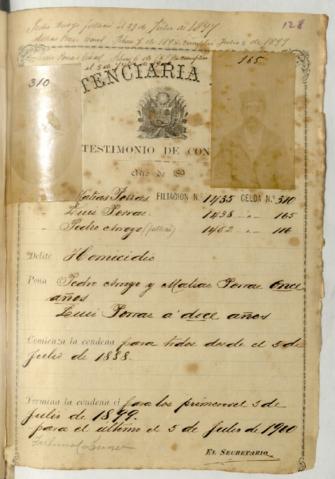 Pedro Arroyo falleció el 23 de Julio de 1897
128
310
165.
TENCIARIA
TESTIMONIO DE CON
Año de 189
Matias Porras FILIACION N.º 1435 CELDA N.º 310
Luis Porras 1438 " " 165
Pedro Arroyo (falleció) 1452 " " 116
Delito Homicidio
Pena Pedro Arroyo y Matias Porras once
años
Luis Porras á doce años
Comienza la condena para todos desde el 5 de
Julio de 1888.
Termina la condena el para los primeros el 5 de
Julio de 1899.
para el último el 5 de Julio de 1900
EL SECRETARIO